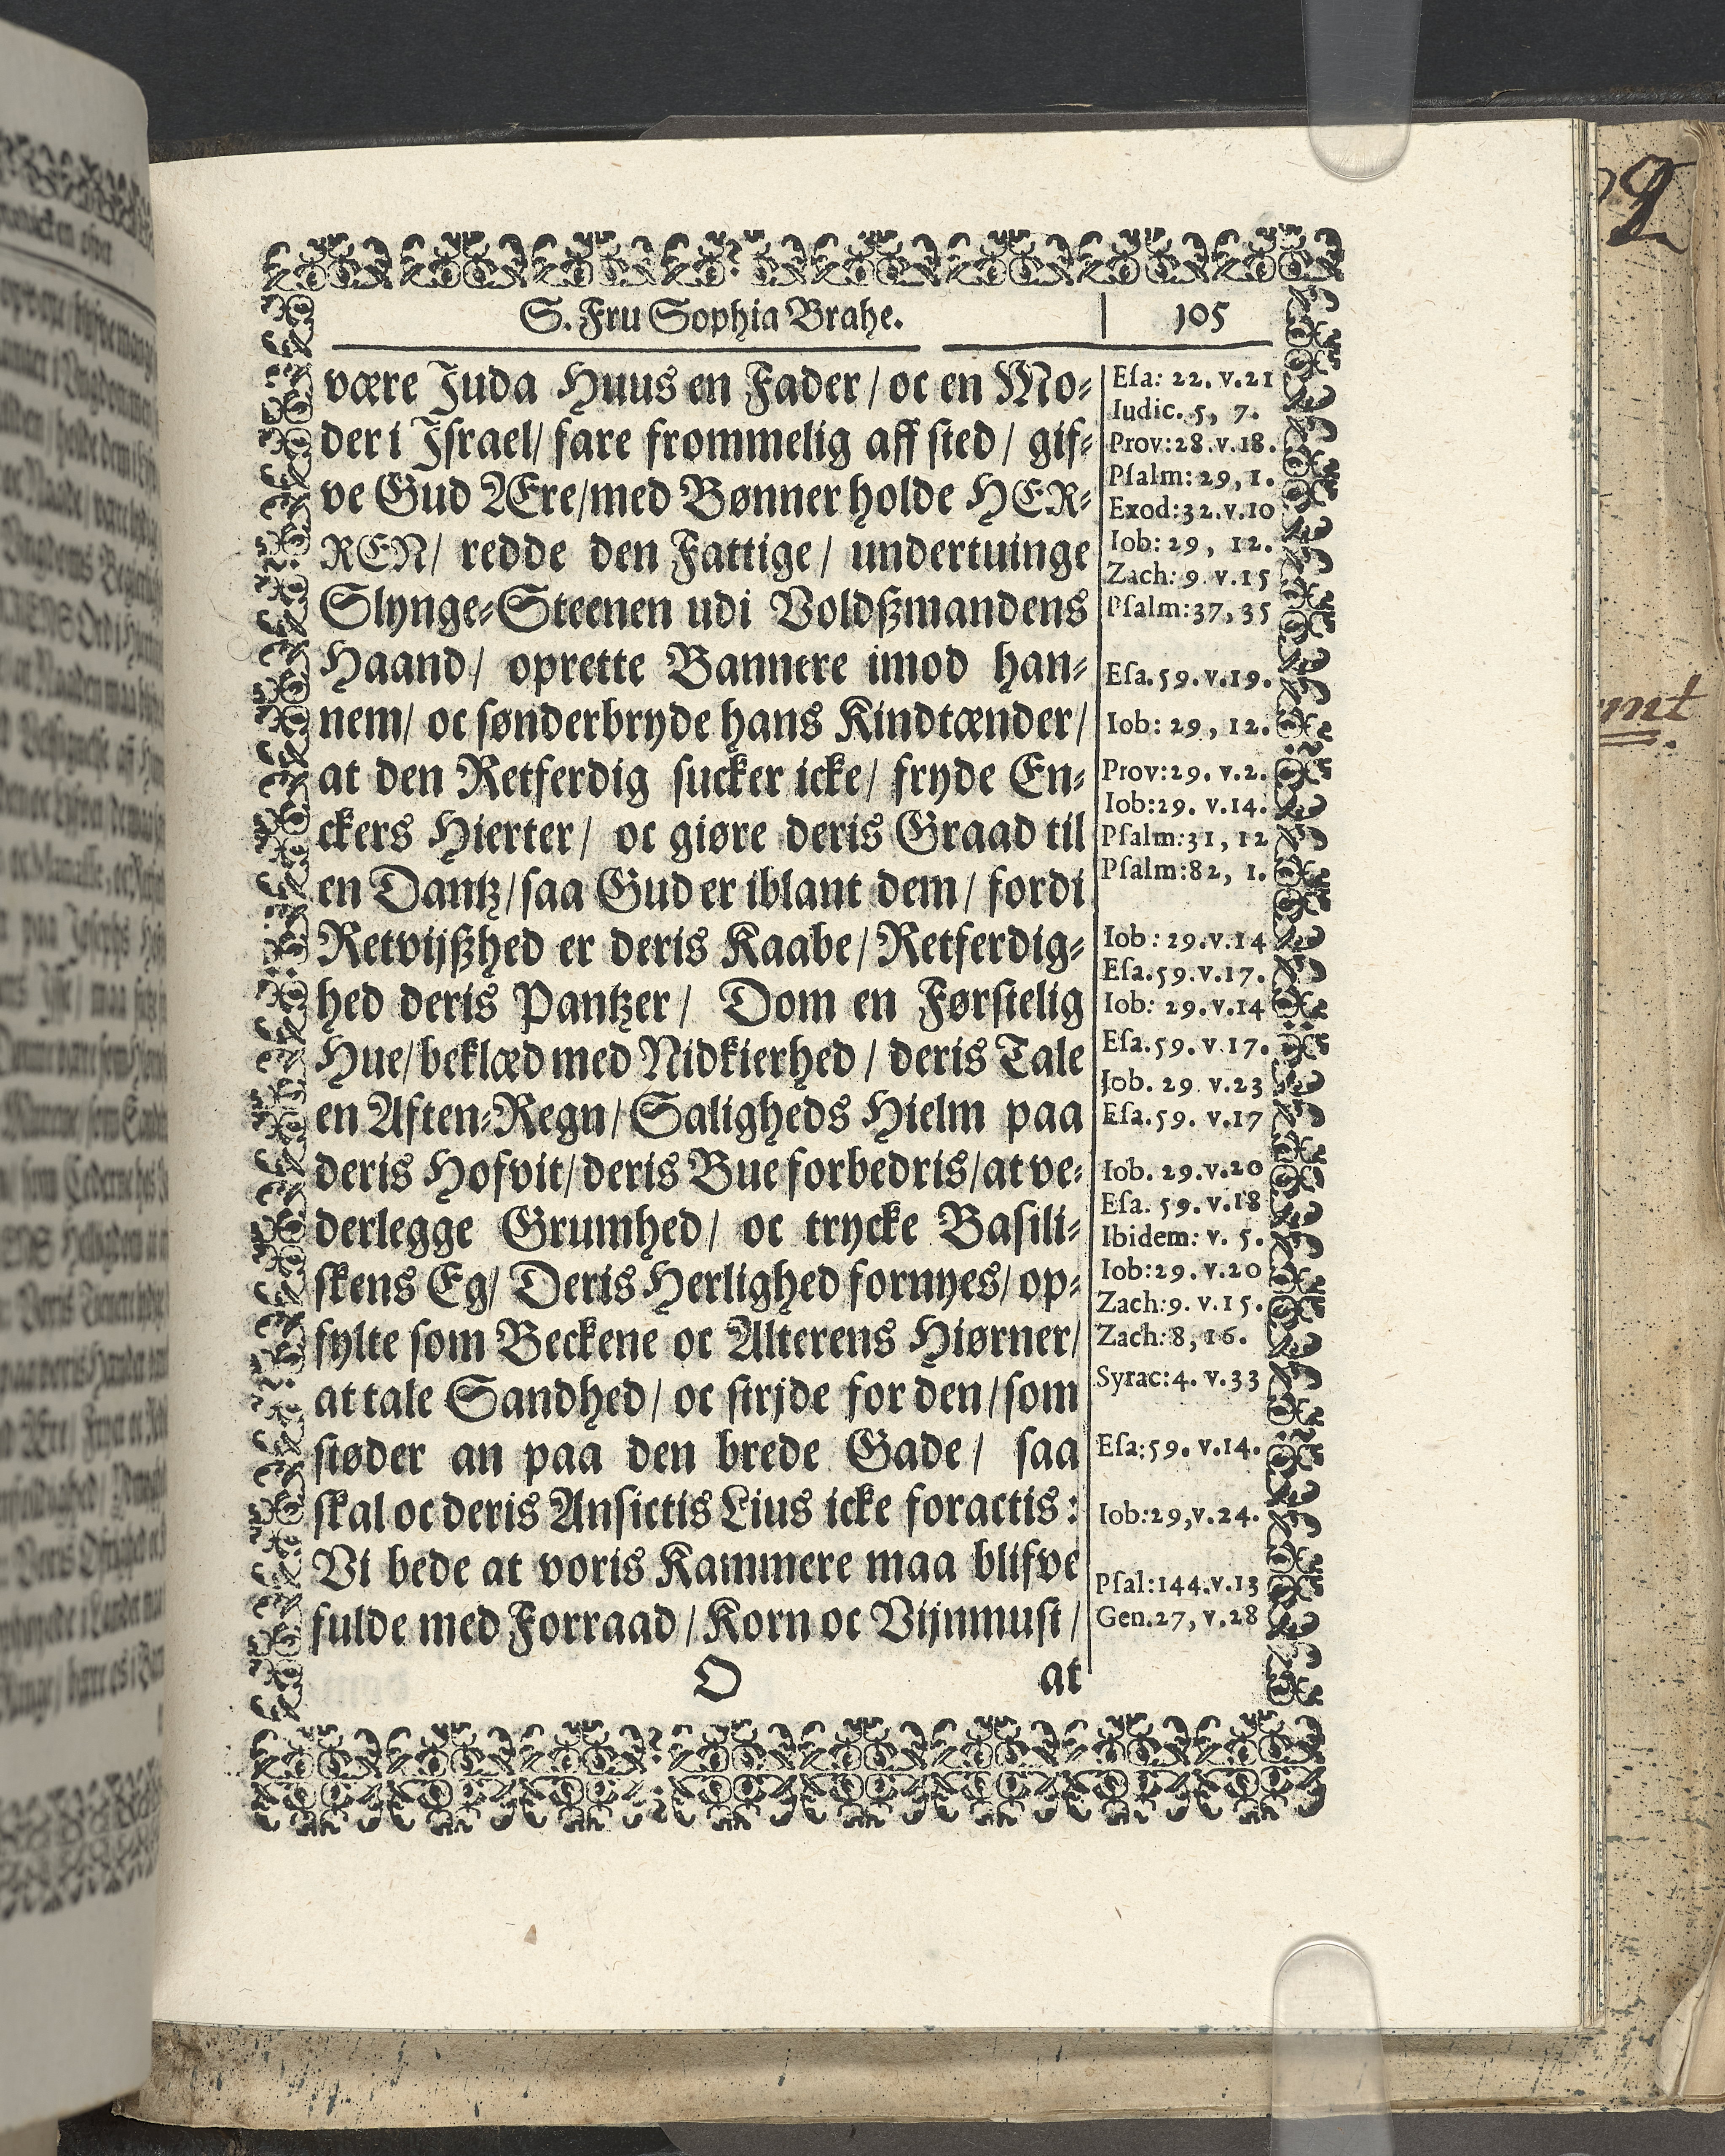 S. Fru Sophia Brahe. 105
være Juda Huus en Fader / oc en Mo⸗
der i Jsrael/ fare frommelig aff sted / gif⸗
ve Gud Ære/med Bønner holde HER⸗
REN/ redde den Fattige / undertuinge
Slynge⸗Steenen udi Voldßmandens
Haand/ oprette Bannere imod han⸗
nem/ oc sønderbryde hans Kindtænder/
at den Retferdig sucker icke/ fryde En⸗
ckers Hierter/ oc giøre deris Graad til
en Dantz/saa Gud er iblant dem / fordi
Retvijßhed er deris Kaabe/Retferdig⸗
hed deris Pantzer/ Dom en Førstelig
Hue/beklæd med Nidkierhed / deris Tale
en Aften⸗Regn/Saligheds Hielm paa
deris Hofvit/deris Bue forbedris/at ve⸗
derlegge Grumhed/ oc trycke Basili⸗
skens Eg/ Deris Herlighed fornyes/ op⸗
fylte som Beckene oc Alterens Hiørner/
at tale Sandhed/ oc strjde for den/som
støder an paa den brede Gade / saa
skal oc deris Ansictis Lius icke foractis:
Vi bede at voris Kammere maa blifve
fulde med Forraad /Korn oc Vijnmust /
O at
Esa: 22. v.21
Iudic. 5, 7.
Prov:28.v.18.
Psalm: 29, 1.
Exod:32.v.10
Iob: 29, 12.
Zach: 9. v.15
Psalm:37, 35
Esa.59.v.19.
Iob: 29, 12.
Prov:29. v.2.
Iob:29. v.14.
Psalm:31, 12
Psalm:82, 1.
Iob: 29.v.14
Esa.59.v.17.
Iob: 29.v.14
Esa.59.v.17.
Job. 29 v.23
Esa.59. v.17
Iob. 29.v.20
Esa. 59. v.18
Ibidem: v. 5.
Iob:29. v.20
Zach:9. v.15.
Zach:8, 16.
Syrac:4. v.33
Esa:59. v.14.
Iob:29,v.24.
Psal:144.v.13
Gen.27, v.28